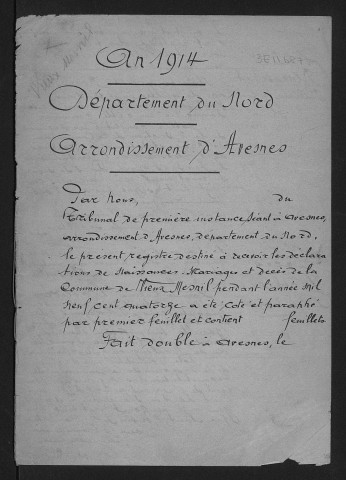 Vieux Mesnil
3E11487
An 1914
Département du Nord
Arrondissement d'Avesnes
Par Nous, du
Tribunal de première instance séant à Avesnes,
arrondissement d'Avesnes, département du Nord,
le présent registre destiné à recevoir les déclara
tions de Naissances Mariages et décès de la
Commune de Vieux Mesnil pendant l'année mil
neuf cent quatorze a été coté et paraphé
par premier feuillet et contient feuillets
Fait double à Avesnes, le